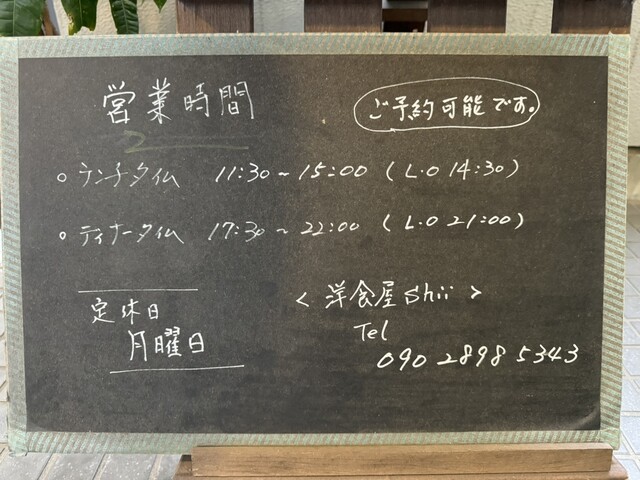 営業時間
ご予約可能です。
○ ランチタイム 11:30~15:00 (L.O 14:30)
○ ディナータイム 17:30~22:00 (L.O 21:00)
定休日
月曜日
<洋食屋 Shii>
Tel
090 2898 5343